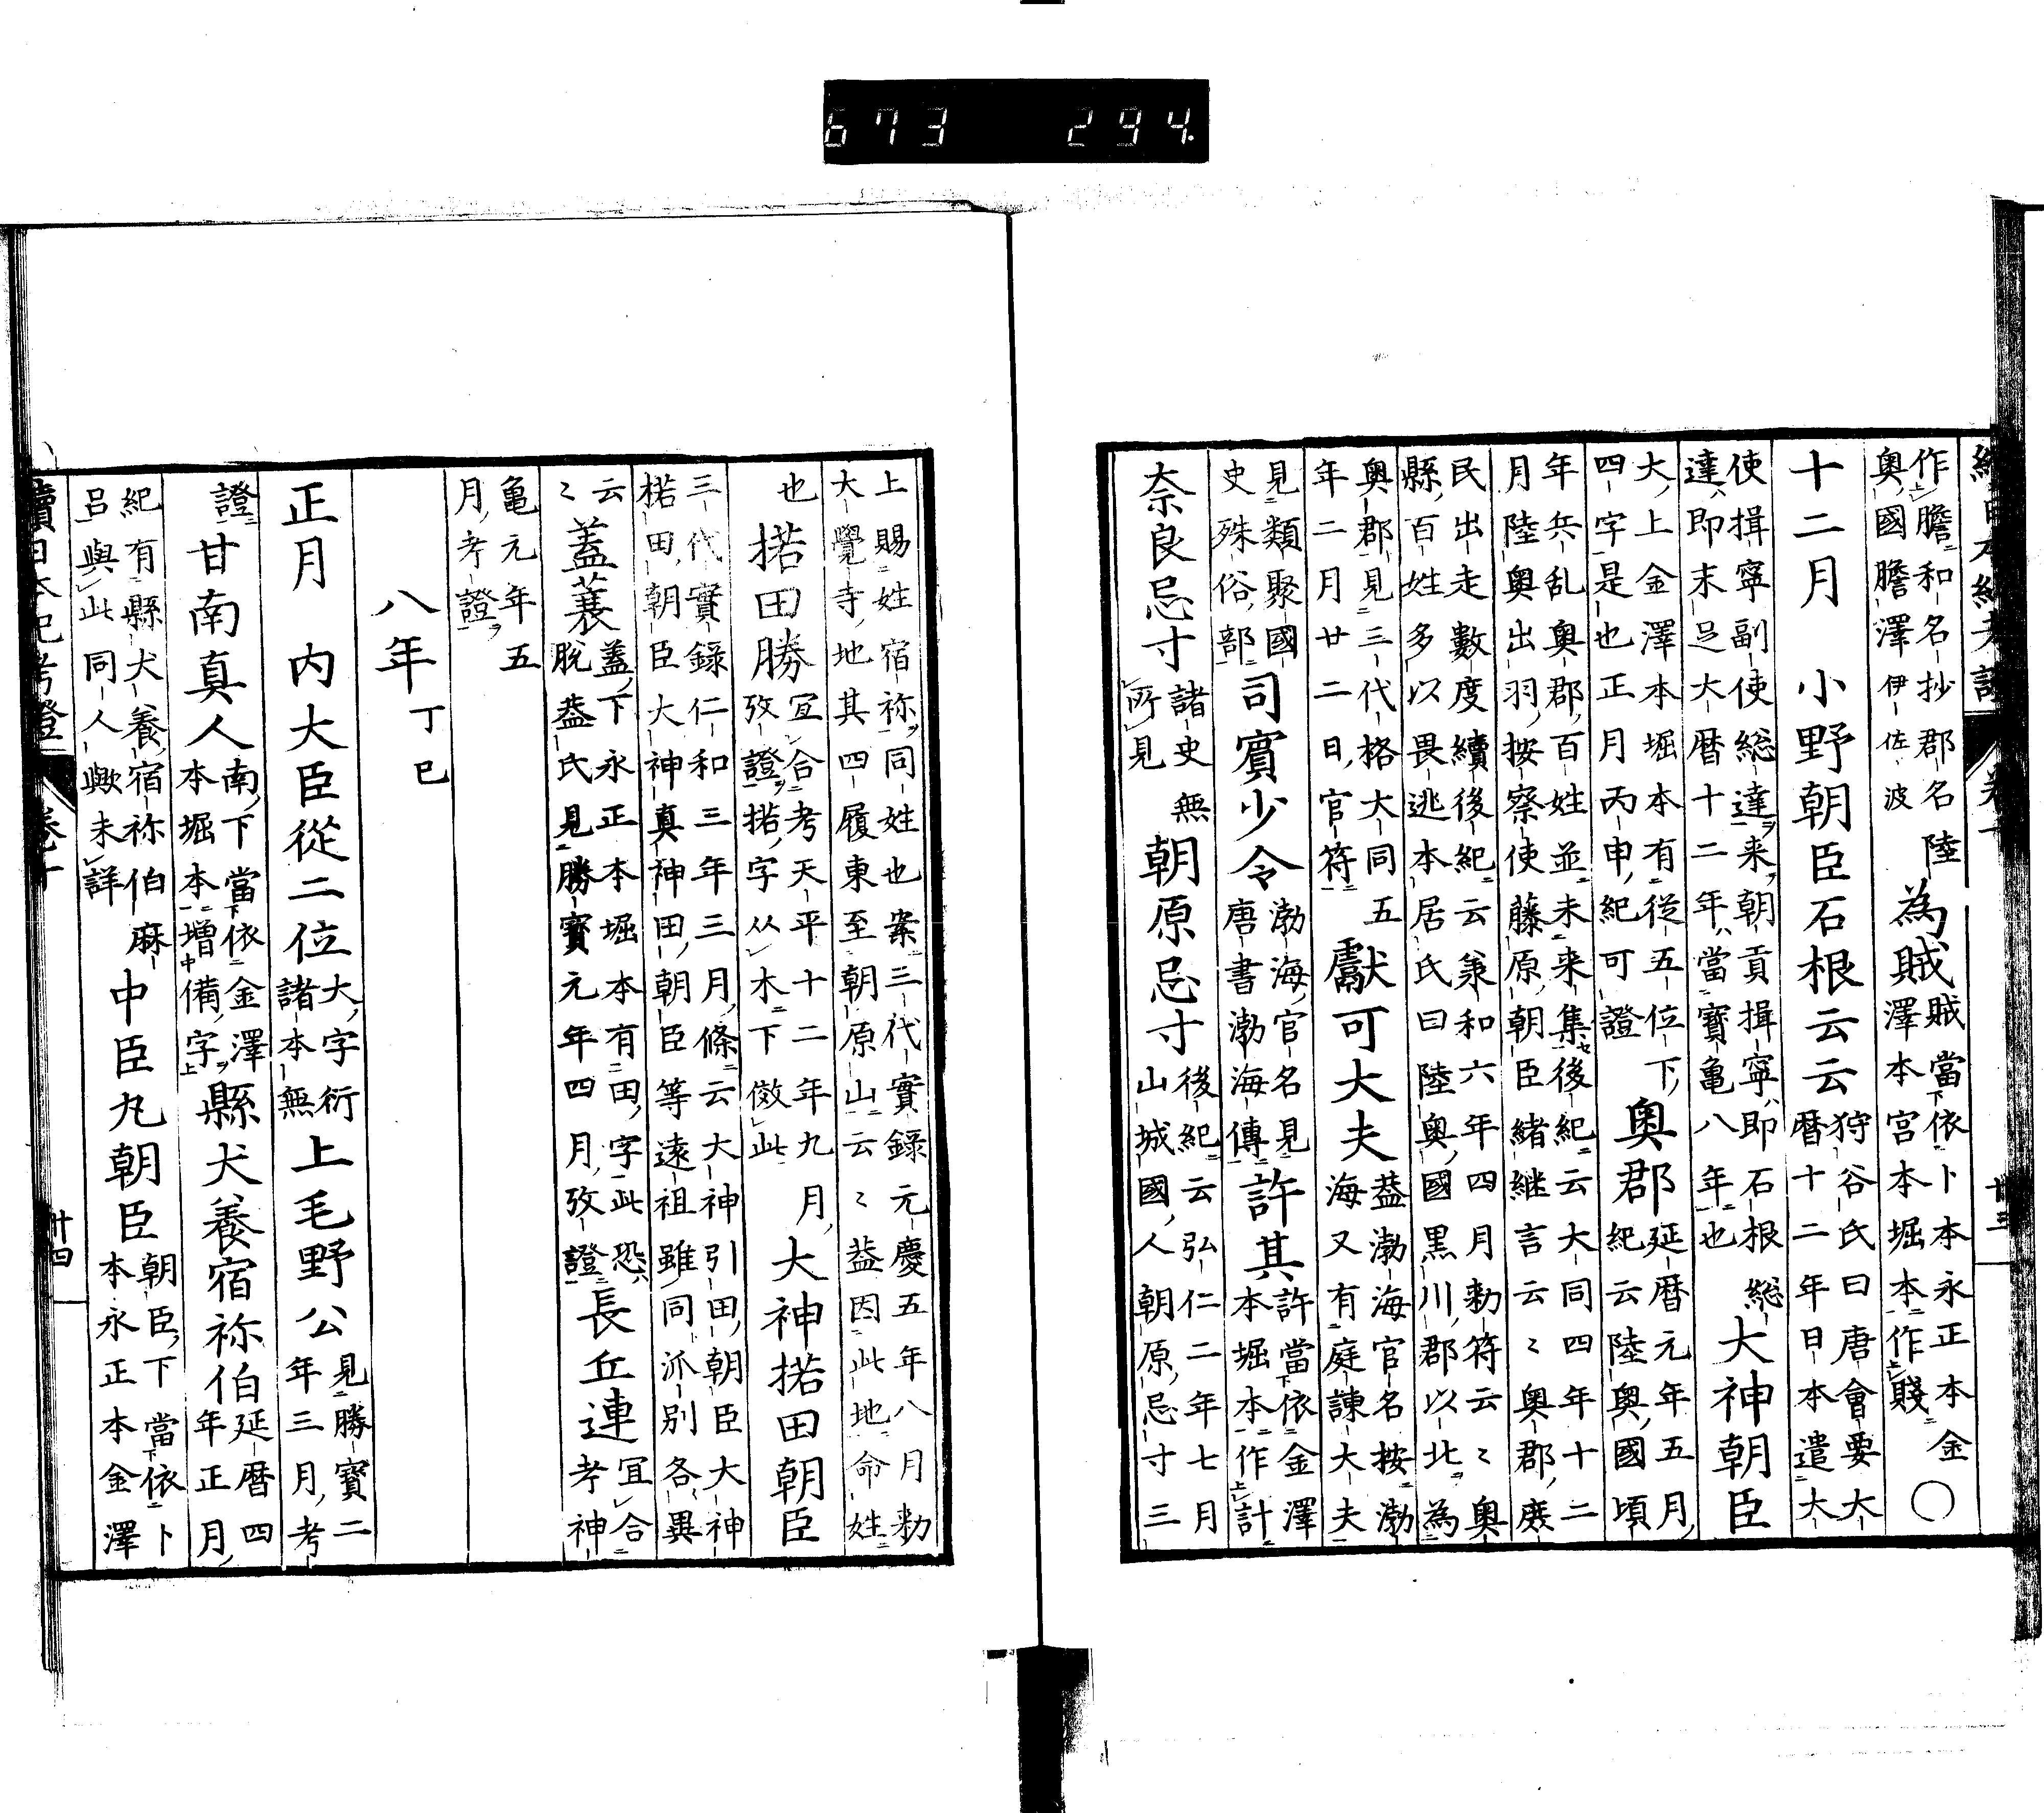 673 294
續日本紀考證 卷十 廿三
作膽和名抄郡名陸
奧國膽澤伊佐波
為賊
賊當依卜本永正本金
澤本宮本堀本作賤
〇
十二月 小野朝臣石根云云
狩谷氏曰唐會要大
曆十二年日本遣大
使揖寧副使総達来朝貢揖寧即石根総
達即末足大曆十二年當寶亀八年也
大神朝臣
大上金澤本堀本有從五位下
四字是也正月丙申紀可證
奧郡
延暦元年五月
紀云陸奧國頃
年兵乱奧郡百姓並未来集後紀云大同四年十二
月陸奧出羽按察使藤原朝臣緒継言云〻奧郡庶
民出走數度續後紀云兼和六年四月勅符云〻奧
縣百姓多以畏逃本居氏曰陸奧國黒川郡以北為
奧郡見三代格大同五
年二月廿二日官符
獻可大夫
葢渤海官名按渤
海又有庭諌大夫
見類聚國
史殊俗部
司賓少令
渤海官名見
唐書渤海傳
許其
許當依金澤
本堀本作計
奈良忌寸
諸史無
所見
朝原忌寸
後紀云弘仁二年七月
山城國人朝原忌寸三
上賜姓宿祢同姓也案三代實録元慶五年八月勅
大覺寺地其四履東至朝原山云〻葢因此地命姓
也
楉田勝
宜合考天平十二年九月
攷證楉字从木下傚此
大神楉田朝臣
三代實録仁和三年三月條云大神引田朝臣大神
楉田朝臣大神真神田朝臣等遠祖雖同派別各異
云
〻
蓋蓑
蓋下永正本堀本有田字此恐
脫葢氏見勝寶元年四月攷證
長丘連
宜合
考神
亀元年五
月考證
八年 丁巳
正月 内大臣從二位
大字衍
諸本無
上毛野公
見勝寶二
年三月考
證
甘南真人
南下當依金澤
本堀本增備字
縣犬養宿祢伯
延暦四
年正月
紀有縣犬養宿祢伯麻
呂與此同人歟未詳
中臣丸朝臣
朝臣下當依卜
本永正本金澤
續日本紀考證 卷十 廿四